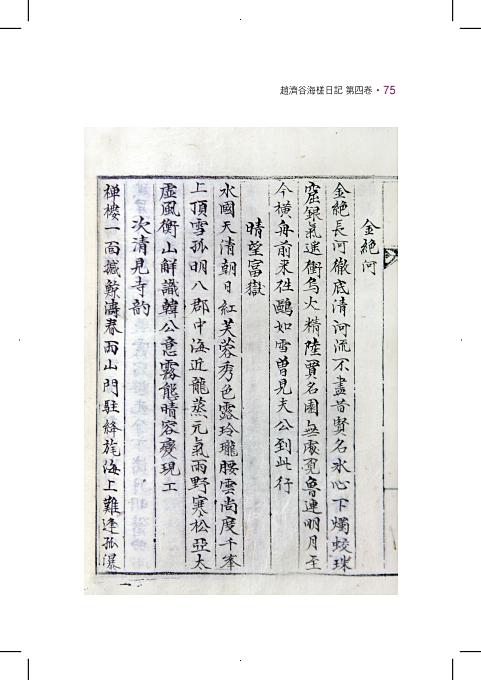 趙濟谷海槎日記 第四卷 · 75
金絶河
金絶長河徹底清河流不盡昔賢名水心下燭蛟珠
窟銀氣迷衝烏火精陸賈名園無處覓魯連明月至
今橫舟前來往鷗如雪曽見夫公到此行
晴望富嶽
水國天清朝日紅芙蓉秀色露玲瓏腰雲尚度千峯
上頂雪孤明八郡中海近龍蒸元氣雨野寒松亞太
虛風衡山解識韓公意霧態晴容變現工
次清見寺韵
禅樓一面撼鯨濤春雨山門駐絳旄海上難逢孤瀑